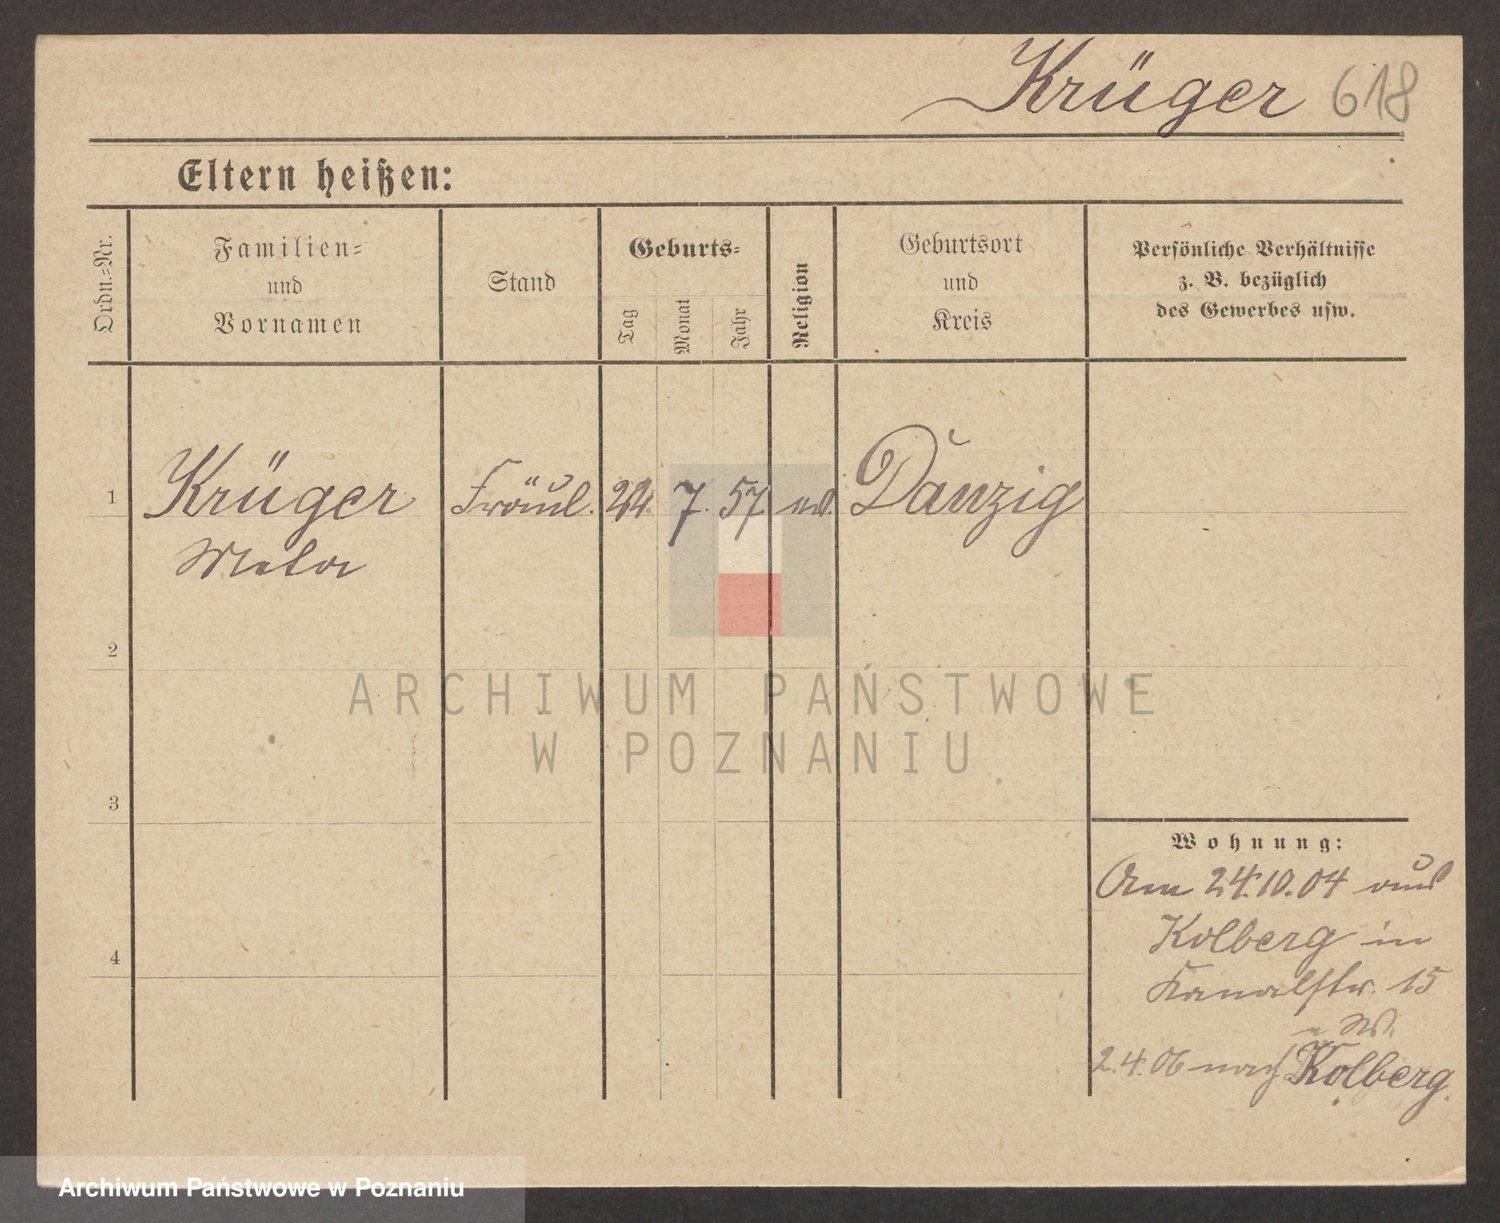 Krüger 618
Eltern heißen:
Ordn.-Nr.
Familien-
und
Vornamen
Stand
Geburts-
Tag
Monat
Jahr
Religion
Geburtsort
und
Kreis
Persönliche Verhältnisse
z. B. bezüglich
des Gewerbes usw.
1 Krüger Fräul. 7. 57. Danzig
Meta
2
ARCHIWUM PAŃSTWOWE
W POZNANIU
3
Wohnung:
Am 24.10.04 aus
Kolberg in
4
Kanalstr. 15
2.4.06 nach Kolberg.
Archiwum Państwowe w Poznaniu